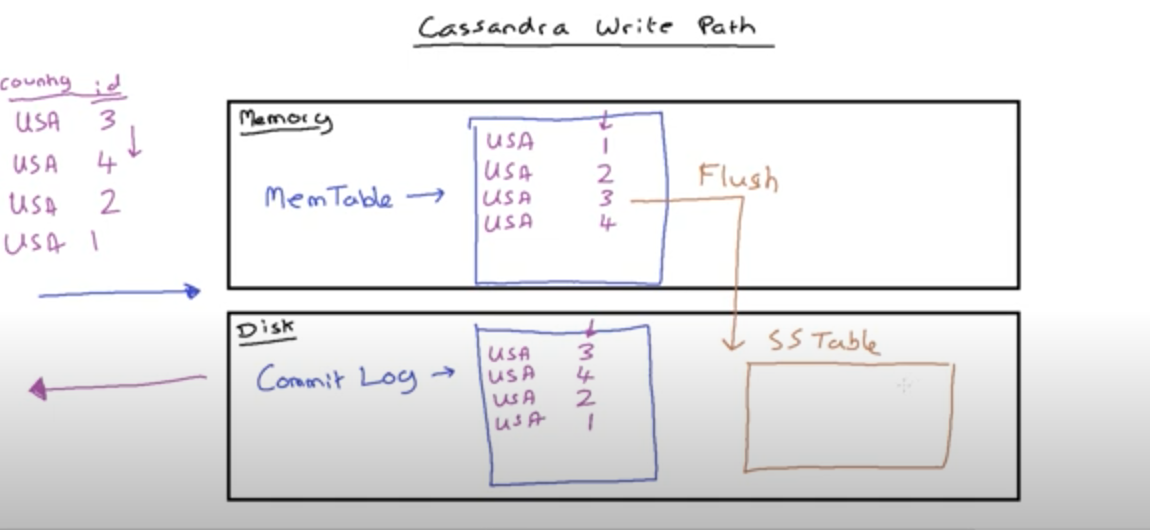 Cassandra Write Path
country id
USA 3
USA 4
USA 2
USA 1
Memory
MemTable
USA 1
USA 2
USA 3
USA 4
Flush
Disk
Commit Log
USA 3
USA 4
USA 2
USA 1
SS Table